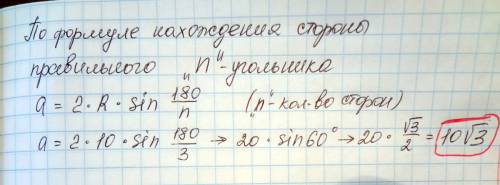 По формуле нахождения стороны
правильного "n"-угольника
a = 2·R·sin 180/n ("n"-кол-во сторон)
a = 2·10·sin 180/3 → 20·sin60° → 20·√3/2 = 10√3